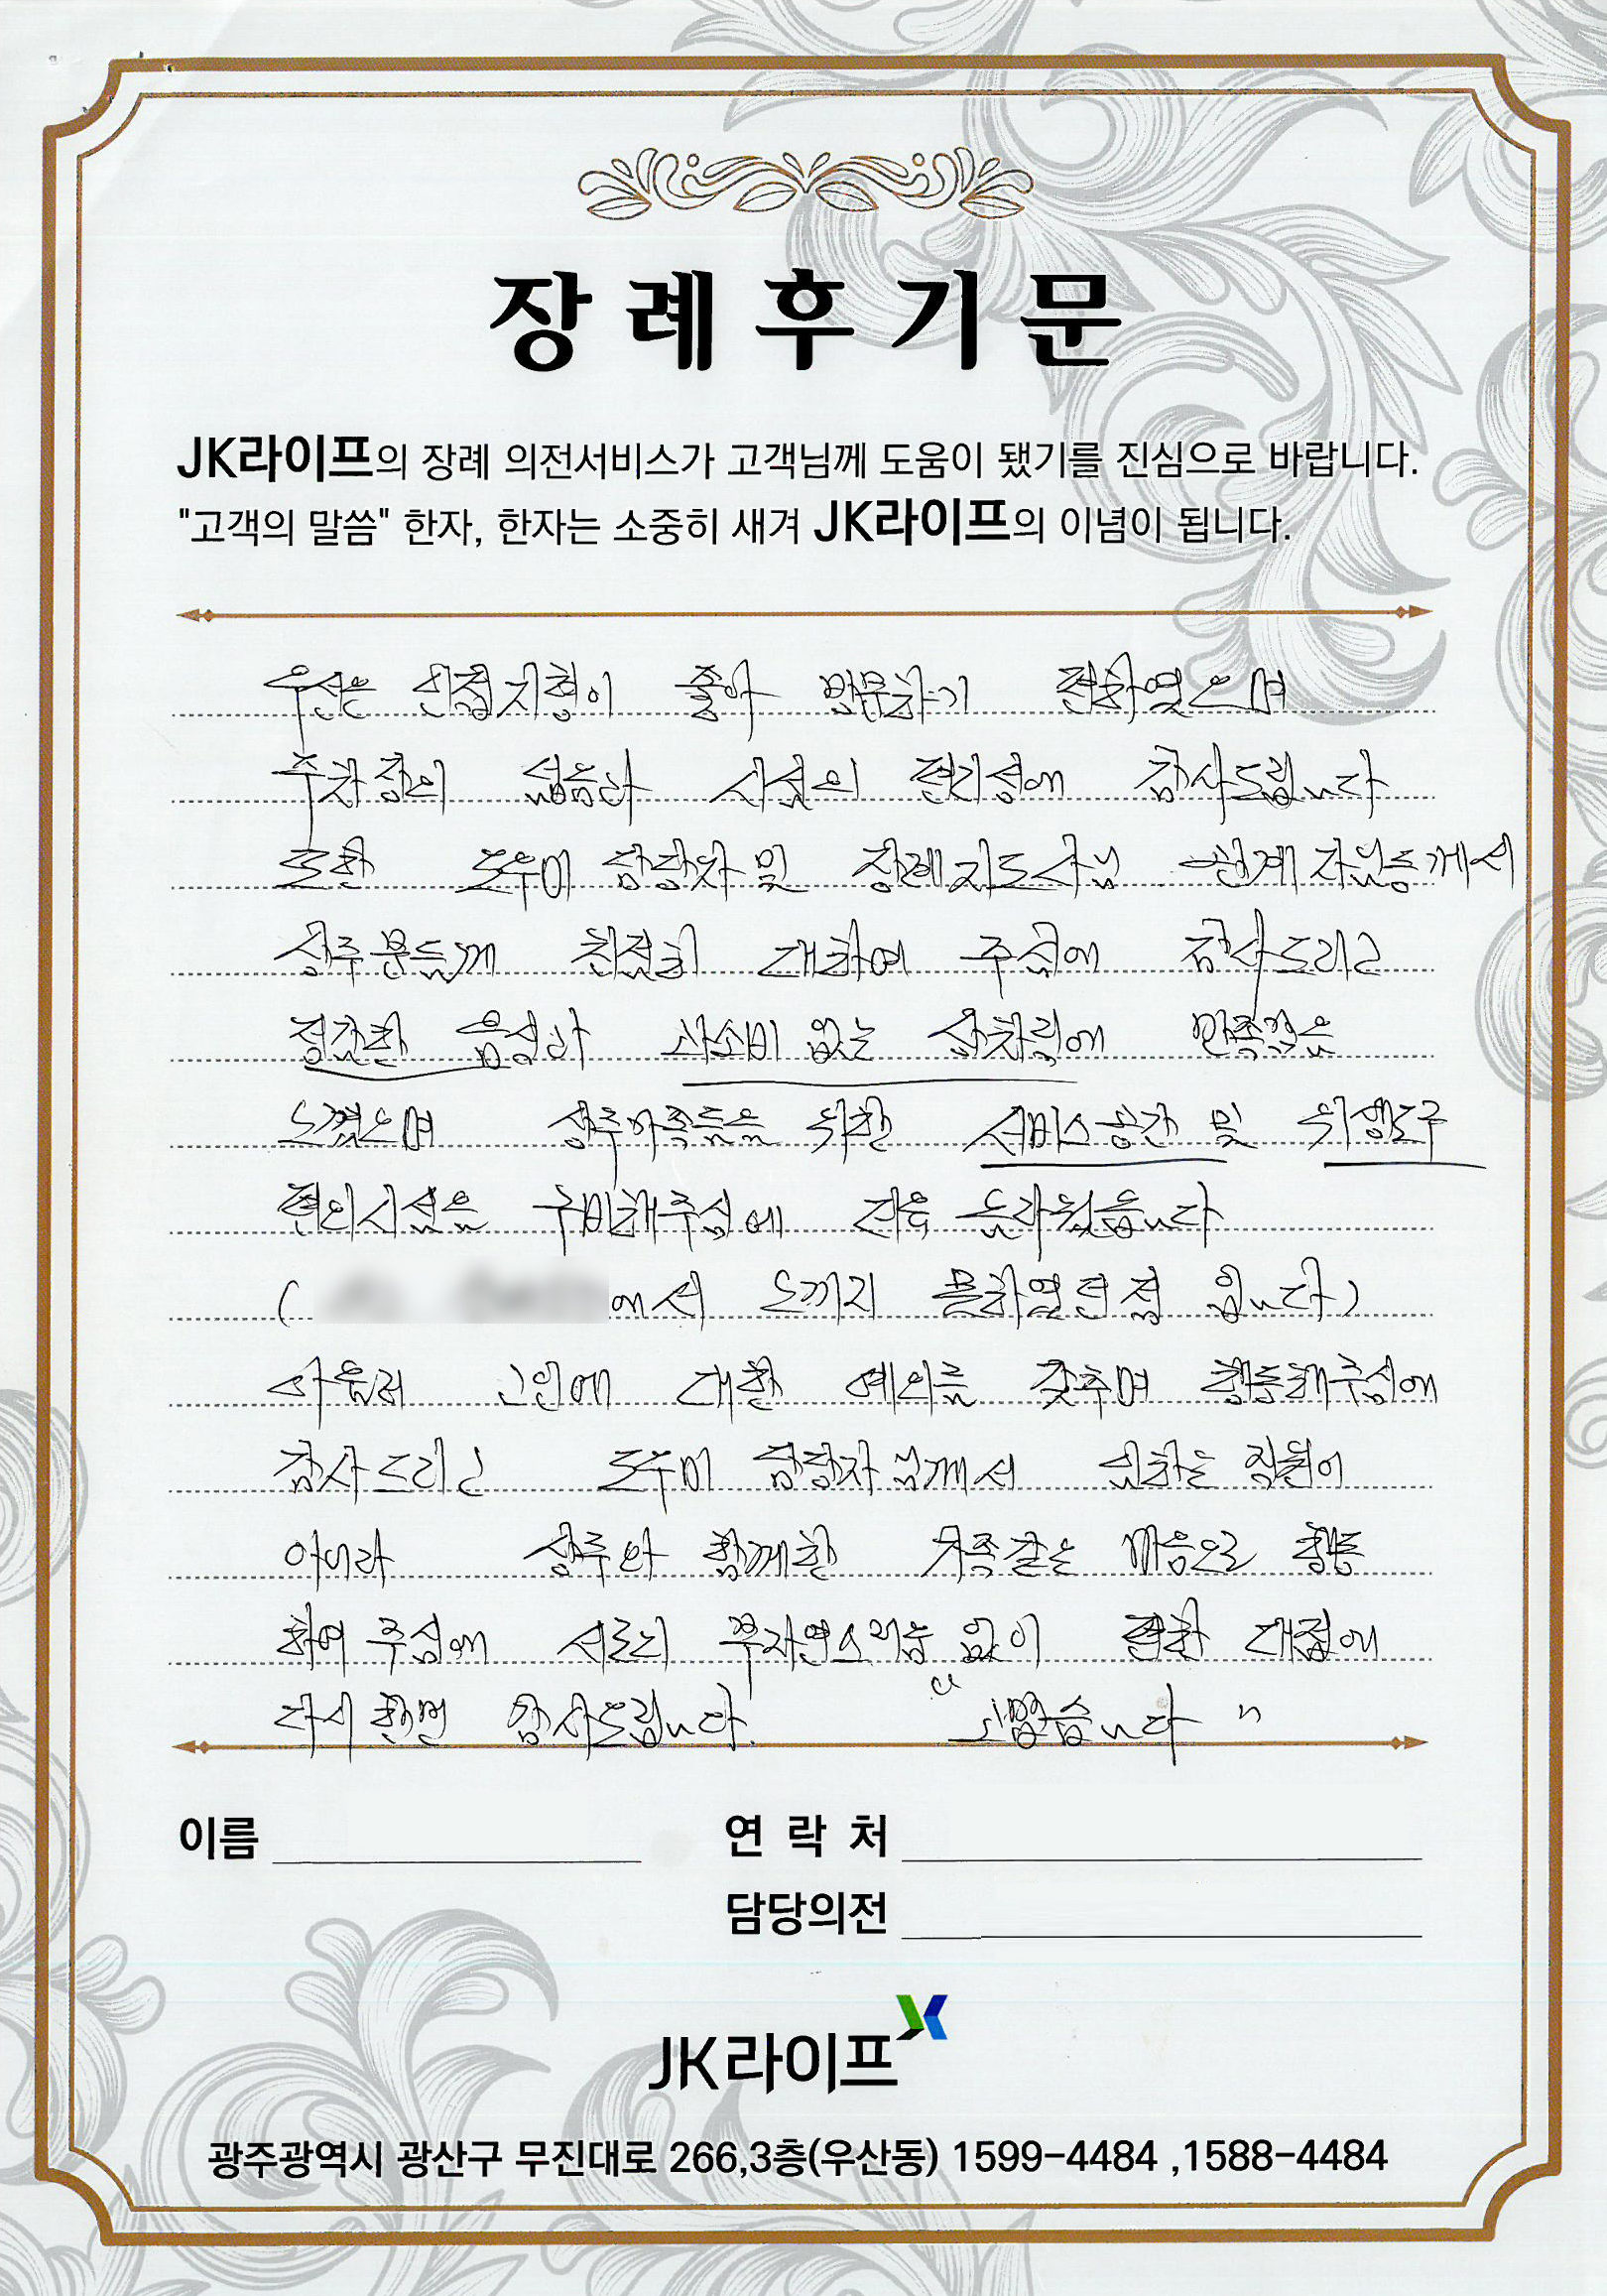 장례후기문
JK라이프의 장례 의전서비스가 고객님께 도움이 됐기를 진심으로 바랍니다.
"고객의 말씀" 한자, 한자는 소중히 새겨 JK라이프의 이념이 됩니다.
우선은 인접지형이 좋아 방문하기 편하였으며
주차장의 넓음과 시설의 편리성에 감사드립니다
또한 도우미 담당자 및 장례지도사님 관계자님들께서
상주분들께 친절히 대하여 주심에 감사드리고
정갈한 음식과 과소비 없는 상차림에 만족감을
느꼈으며 상주가족들을 위한 서비스공간 및 위생도구
편의시설을 구비해주심에 더욱 놀라웠습니다
( 에서 느끼지 못하였던점 입니다)
아울러 고인에 대한 예의를 갖추며 행동해주심에
감사드리고 도우미 담당자님께서 일하는 직원이
아니라 상주와 함께한 가족같은 마음으로 행동
하여 주심에 서로의 부자연스러움 없이 편한 대접에
다시 한번 감사드립니다. "고맙습니다"
이름 연락처
담당의전
JK라이프
광주광역시 광산구 무진대로 266,3층(우산동) 1599-4484 ,1588-4484